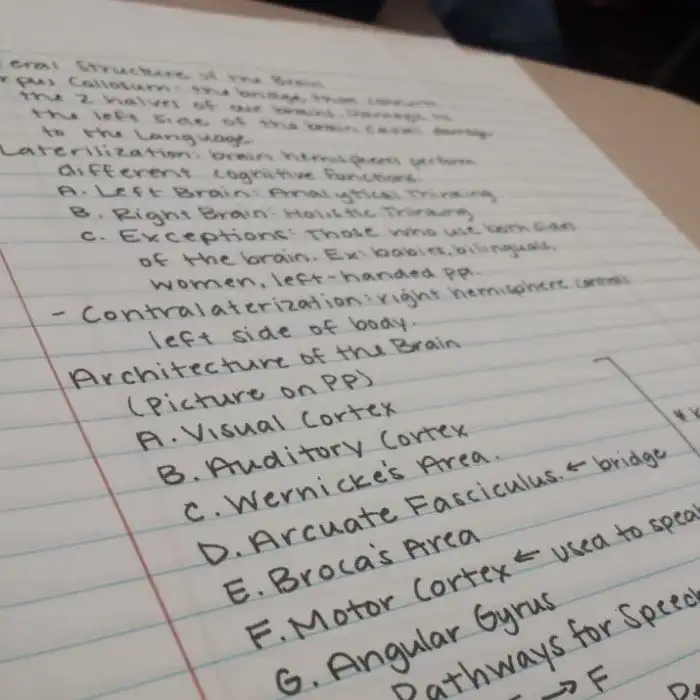 eral Structure of the Brain
rpus Callosum: the bridge that connects
the 2 halves of our brains. Damage to
the left side of the brain causes damage
to the Language
Laterilization: brain hemispheres perform
different cognitive functions.
A. Left Brain: Analytical Thinking
B. Right Brain: Holistic Thinking
C. Exceptions: Those who use both sides
of the brain. Ex: babies, bilinguals,
women, left-handed ppl.
- Contralaterization: right hemisphere controls
left side of body.
Architecture of the Brain
(Picture on PP)
A. Visual Cortex
B. Auditory Cortex
C. Wernicke's Area.
D. Arcuate Fasciculus. ← bridge
E. Broca's Area
F. Motor Cortex ← used to speak
G. Angular Gyrus
Pathways for Speech
→ F